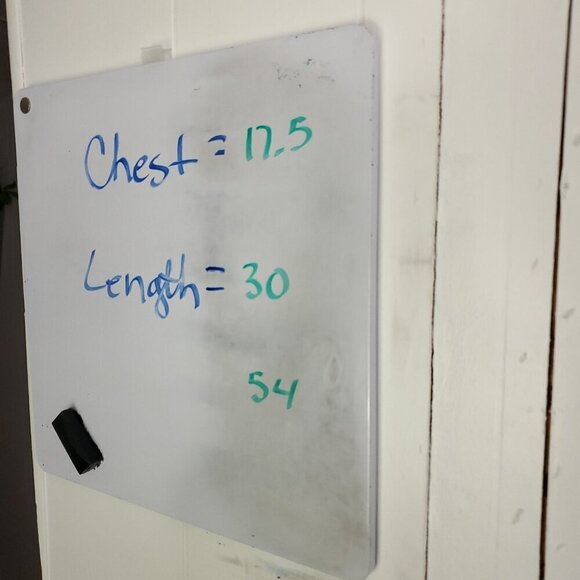 Chest = 17.5
Length = 30
54